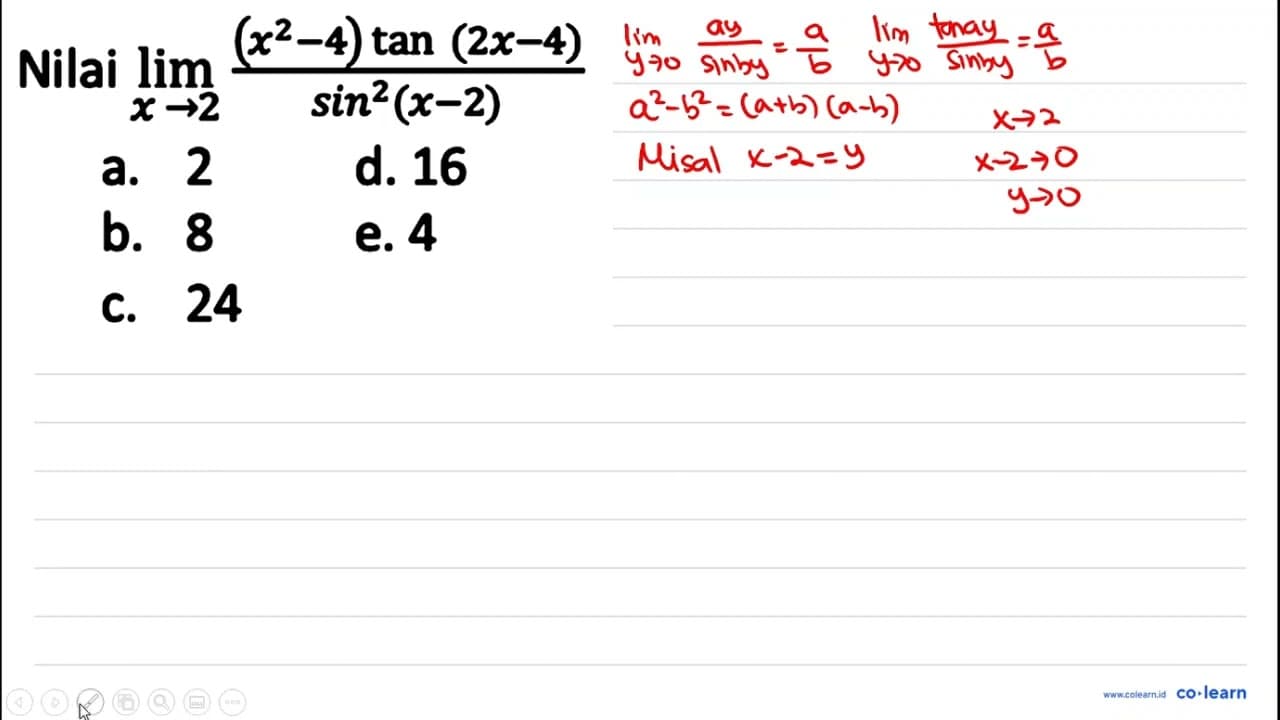 Nilai lim x→2 (x²−4) tan (2x−4) / sin²(x−2)
a. 2
d. 16
b. 8
e. 4
c. 24
lim y→0 ay / sin by = a/b lim y→0 tan ay / sin by = a/b
a²-b² = (a+b) (a-b)
Misal x-2 = y
x→2
x-2→0
y→0
www.colearn.id co·learn